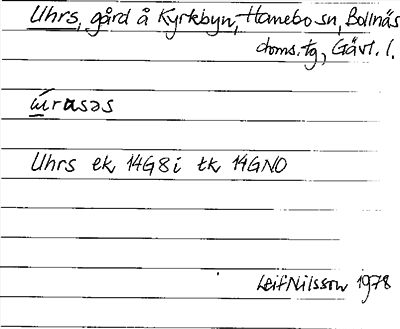 Uhrs, gård å Kyrkbyn, Hanebo sn, Bollnäs
doms. tg, Gävl. l.
ẃrasəs
Uhrs ek 14G8i tk 14GNO
Leif Nilsson 1978